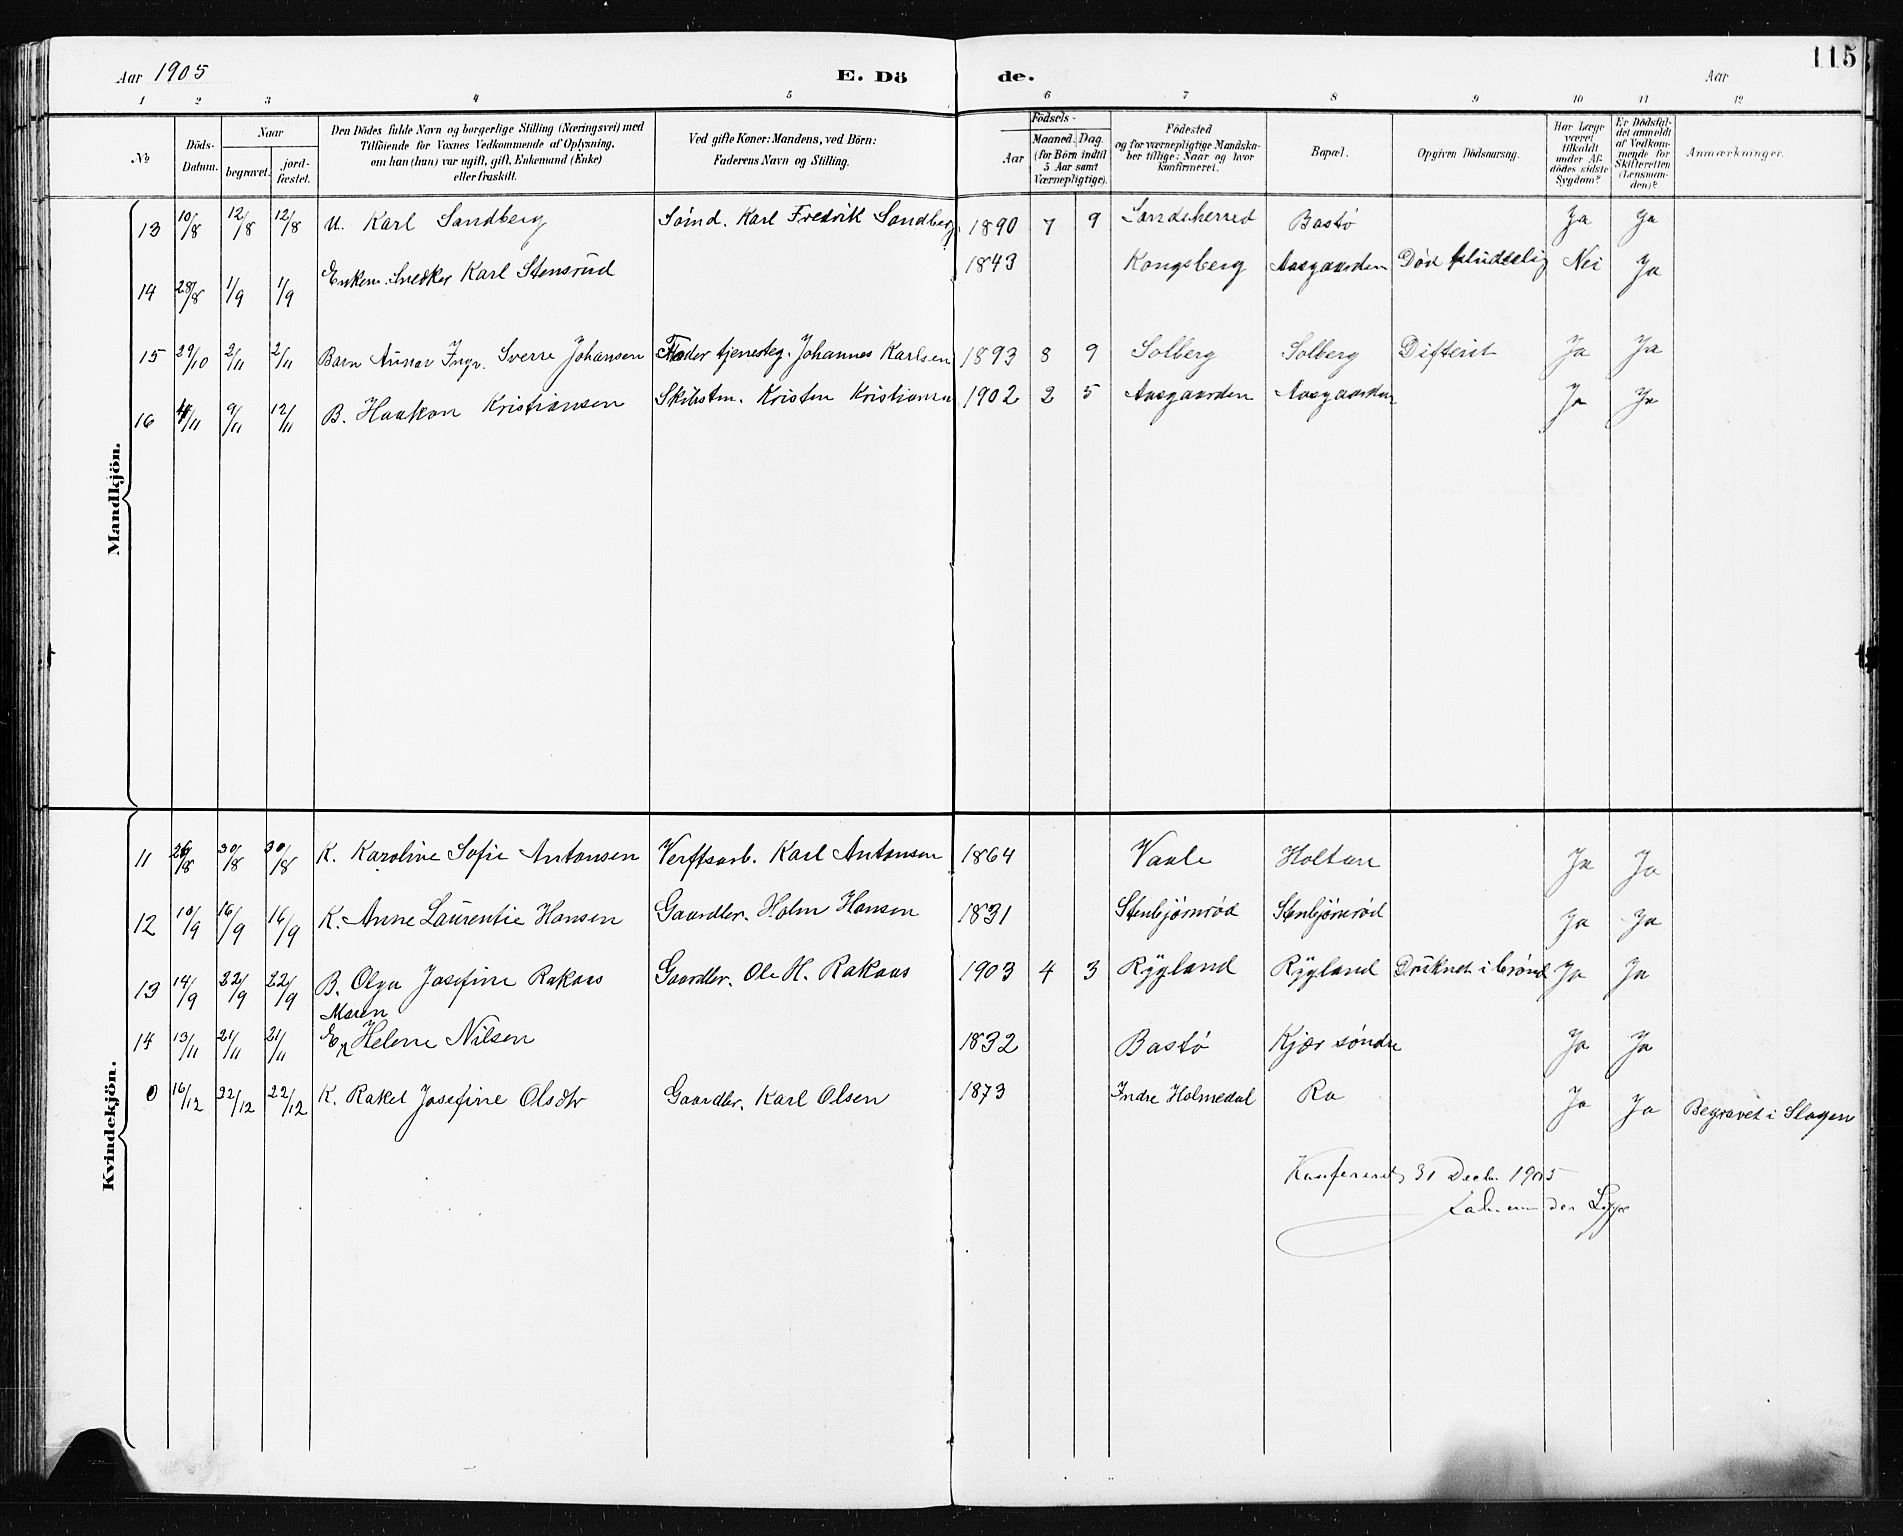 115
Aar 1905 E. Dö de. Aar
1 2 3 4 5 6 7 8 9 10 11 12
No
Döds-Datum.
Naar
begravet.
jord-fæstet.
Den Dödes fulde Navn og borgerlige Stilling (Næringsvei) med
Tilföiende for Voxnes Vedkommende af Oplysning,
om han (hun) var ugift, gift, Enkemand (Enke)
eller fraskilt.
Ved gifte Koner: Mandens, ved Börn:
Faderens Navn og Stilling.
Födsels-
Aar
Maaned. Dag.
(for Börn indtil
5 Aar samt
Værnepligtige).
Födested
og for værnepligtige Mandska-
ber tillige: Naar og hvor
konfirmeret.
Bopæl.
Opgiven Dödsaarsag.
Har Læge
været
tilkaldt
under Af-
dödes sidste
Sygdom?
Er Dödsfal-
det anmeldt
af Vedkom-
mende for
Skifteretten
(Lensman-
den)?
Anmærkninger.
Mandkjön.
13 10/8 12/8 12/8 U. Karl Sandberg Søind. Karl Fredrik Sandberg 1890 7 9 Sandeherred Bastø Ja Ja
14 28/8 1/9 1/9 Enkem. Snedker Karl Stensrud 1843 Kongsberg Aasgaarden Død pludselig Nei Ja
15 29/10 2/11 2/11 Barn Aunar Ingv. Sverre Johansen Fader tjenesteg. Johannes Karlsen 1893 8 9 Solberg Solberg Difterit Ja Ja
16 4/11 9/11 12/11 B. Haakon Kristiansen Skibstm. Kristen Kristiansen 1902 2 5 Aasgaarden Aasgaarden Ja Ja
Kvindekjön.
11 26/8 30/8 30/8 K. Karoline Sofie Antonsen Verftsarb. Karl Antonsen 1864 Vaale Holtan Ja Ja
12 10/9 16/9 16/9 K. Anne Laurentie Hansen Gaardbr. Holm Hansen 1831 Stenbjørnrød Stenbjørnrød Ja Ja
13 14/9 22/9 22/9 B. Olga Josefine Rakaas Gaardbr. Ole H. Rakaas 1903 4 3 Rygland Rygland Druknet i brønd Ja Ja
Maren
14 13/11 21/11 21/11 E. Helene Nilsen 1832 Bastø Kjær søndre Ja Ja
0 16/12 22/12 22/12 K. Rakel Josefine Olsdtr Gaardbr. Karl Olsen 1873 Indre Holmedal Ra Ja Ja Begravet i Slagen
Konfereret 31 Decbr. 1905